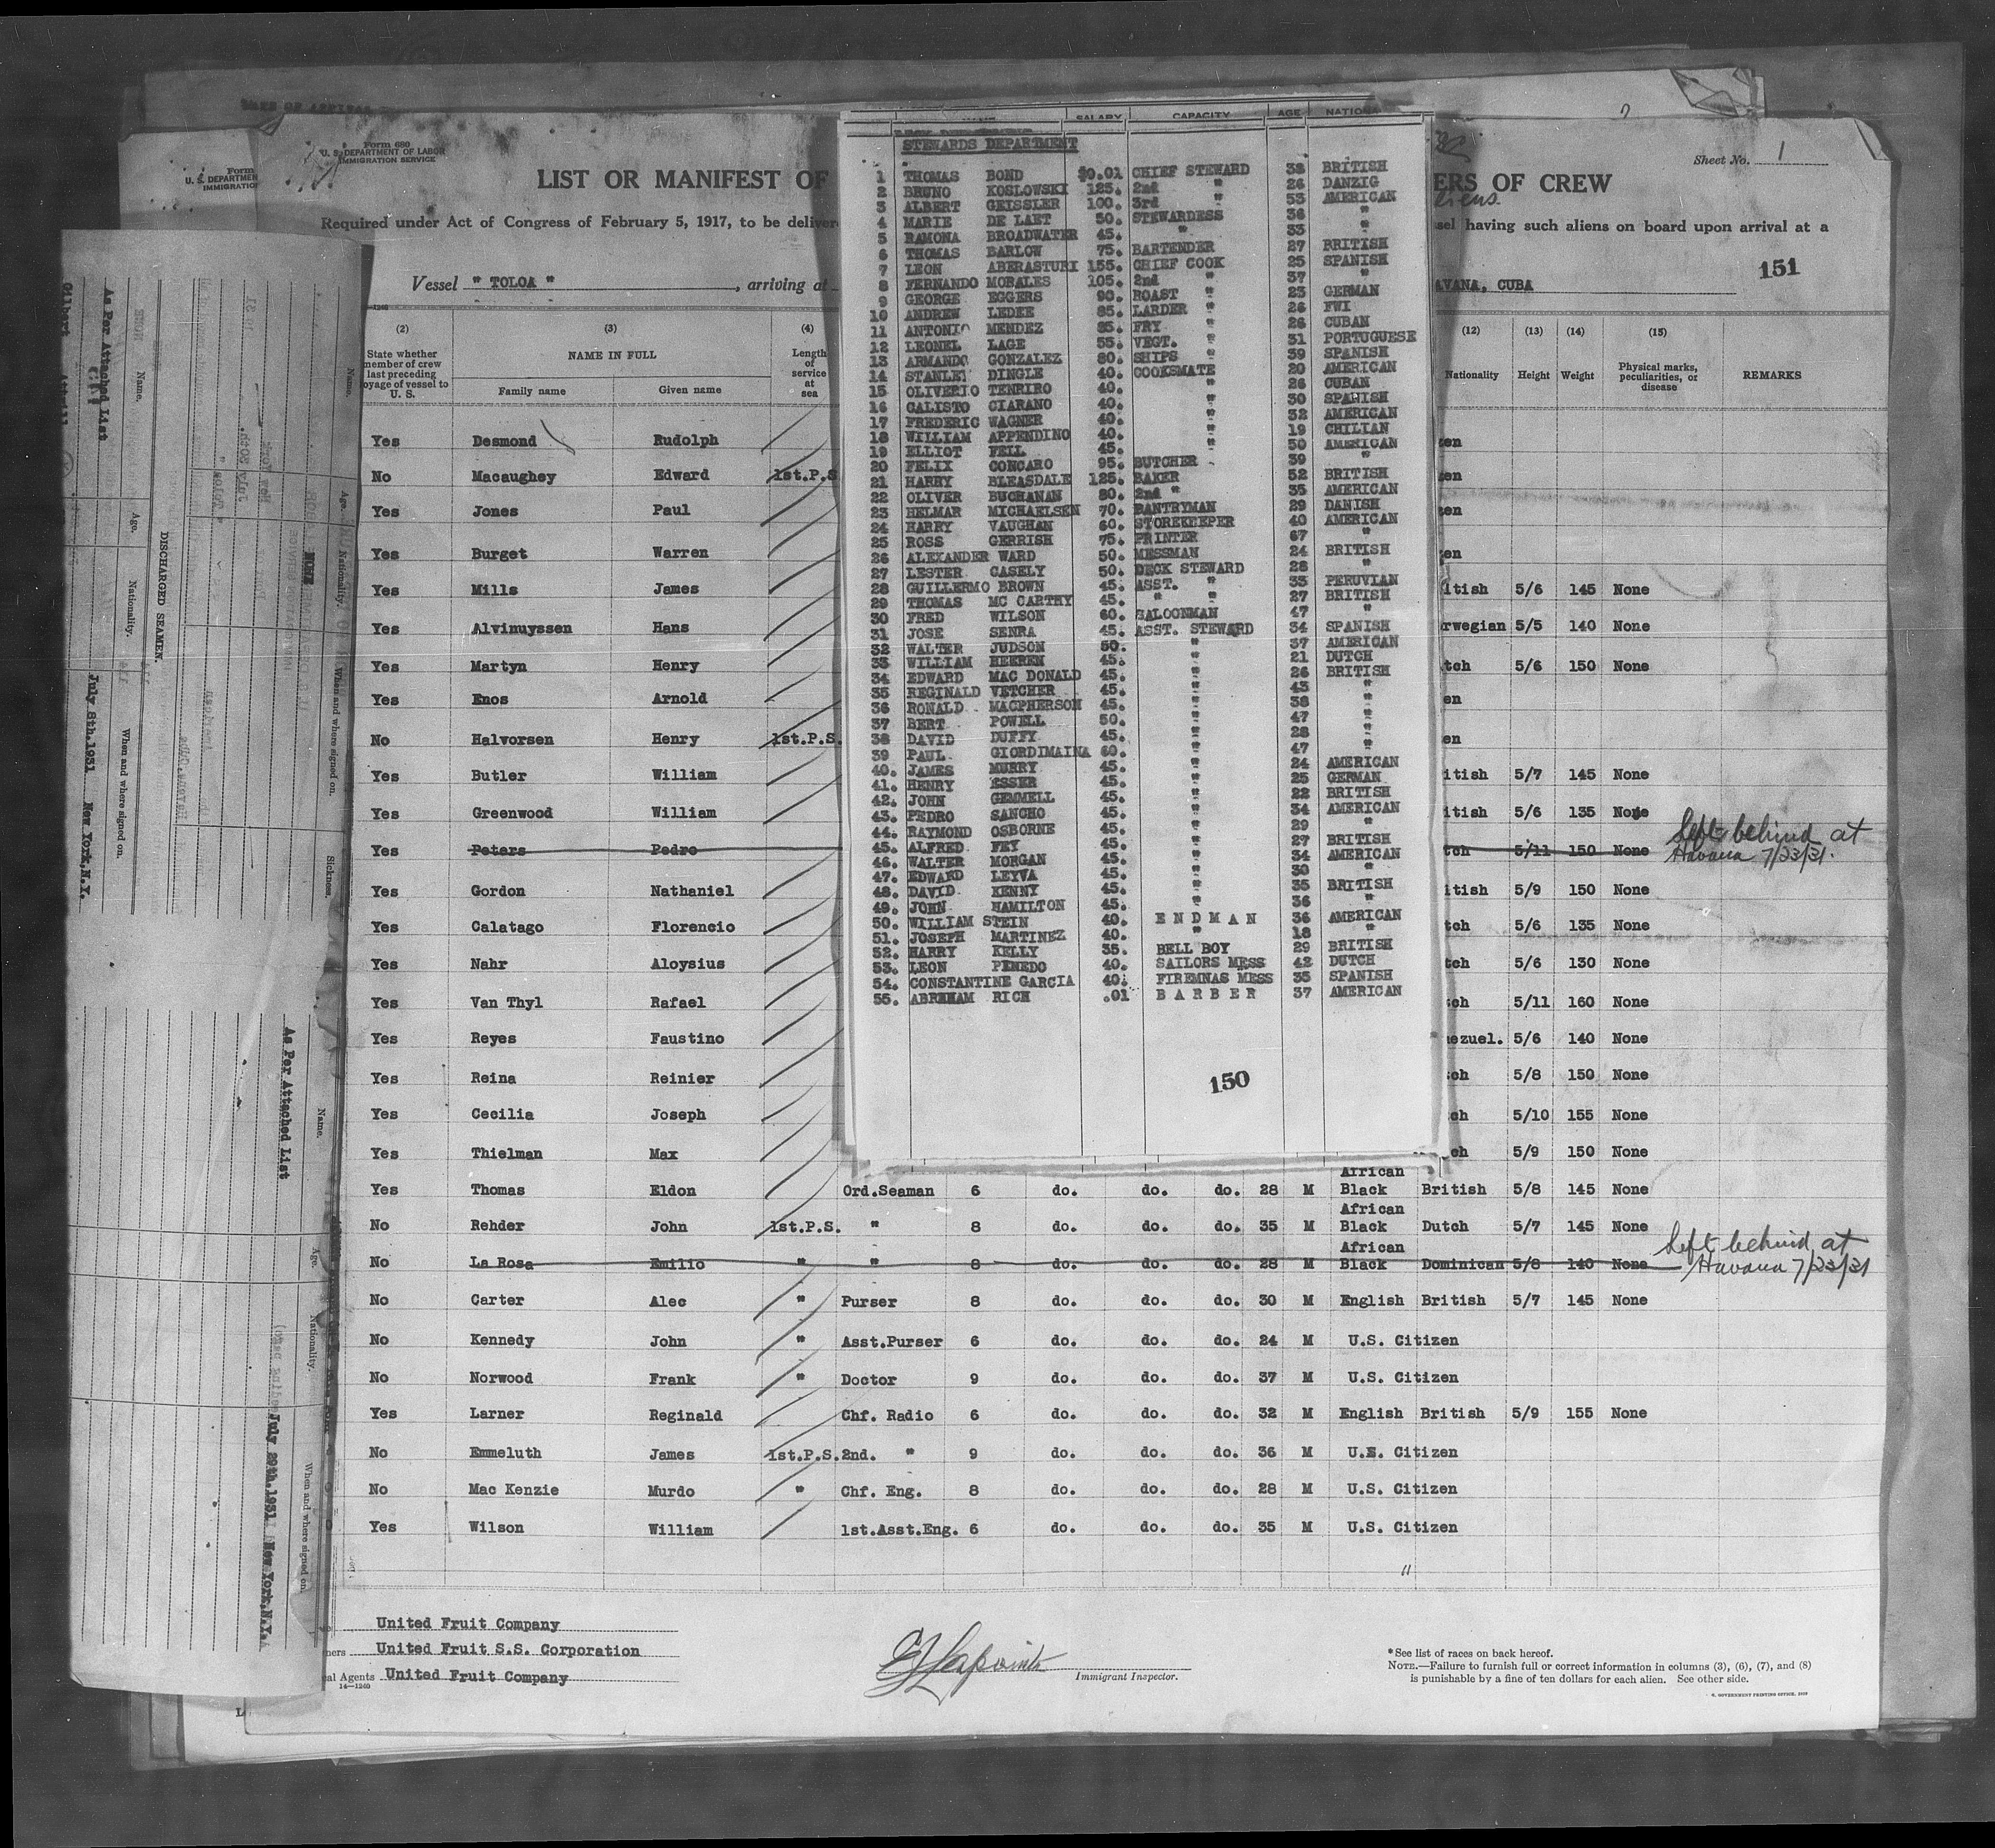 Form 680
U. S. DEPARTMENT OF LABOR
IMMIGRATION SERVICE
Form
U. S. DEPARTMEN
IMMIGRATION
Sheet No. 1
LIST OR MANIFEST OF
ERS OF CREW
Required under Act of Congress of February 5, 1917, to be deliver
sel having such aliens on board upon arrival at a
151
Vessel " TOLOA " , arriving at
AVANA, CUBA
(2) (3) (4)
State whether member of crew last preceding oyage of vessel to U. S.
NAME IN FULL
Family name Given name
Length of service at sea
(12) (13) (14) (15)
Nationality Height Weight Physical marks, peculiarities, or disease REMARKS
Yes Desmond Rudolph
No Macaughey Edward 1st.P.S
Yes Jones Paul
Yes Burget Warren
Yes Mills James itish 5/6 145 None
Yes Alvinuyssen Hans rwegian 5/5 140 None
Yes Martyn Henry tch 5/6 150 None
Yes Enos Arnold en
No Halvorsen Henry 1st.P.S. en
Yes Butler William itish 5/7 145 None
Yes Greenwood William itish 5/6 135 None
Yes Peters Pedro tch 5/11 150 None Left behind at Havana 7/23/31.
Yes Gordon Nathaniel itish 5/9 150 None
Yes Calatago Florencio tch 5/6 135 None
Yes Nahr Aloysius tch 5/6 130 None
Yes Van Thyl Rafael ch 5/11 160 None
Yes Reyes Faustino ezuel. 5/6 140 None
Yes Reina Reinier ch 5/8 150 None
Yes Cecilia Joseph ch 5/10 155 None
Yes Thielman Max ch 5/9 150 None
Yes Thomas Eldon Ord.Seaman 6 do. do. do. 28 M African Black British 5/8 145 None
No Rehder John 1st.P.S. " 8 do. do. do. 35 M African Black Dutch 5/7 145 None
No La Rosa Emilio " " 8 do. do. do. 28 M African Black Dominican 5/8 140 None Left behind at Havana 7/23/31
No Carter Alec " Purser 8 do. do. do. 30 M English British 5/7 145 None
No Kennedy John " Asst.Purser 6 do. do. do. 24 M U.S. Citizen
No Norwood Frank " Doctor 9 do. do. do. 37 M U.S. Citizen
Yes Larner Reginald Chf. Radio 6 do. do. do. 32 M English British 5/9 155 None
No Emmeluth James 1st.P.S. 2nd. " 9 do. do. do. 36 M U.S. Citizen
No Mac Kenzie Murdo " Chf. Eng. 8 do. do. do. 28 M U.S. Citizen
Yes Wilson William 1st.Asst.Eng. 6 do. do. do. 35 M U.S. Citizen
United Fruit Company
ners United Fruit S.S. Corporation
al Agents United Fruit Company
14—1240
Immigrant Inspector.
* See list of races on back hereof.
NOTE.—Failure to furnish full or correct information in columns (3), (6), (7), and (8)
is punishable by a fine of ten dollars for each alien. See other side.
SALARY CAPACITY AGE NATIONA
STEWARDS DEPARTMENT
1 THOMAS BOND $0.01 CHIEF STEWARD 38 BRITISH
2 BRUNO KOSLOWSKI 125. 2nd " 26 DANZIG
3 ALBERT GEISSLER 100. 3rd " 53 AMERICAN
4 MARIE DE LAET 50. STEWARDESS 36 "
5 RAMONA BROADWATER 45. " 33 "
6 THOMAS BARLOW 75. BARTENDER 27 BRITISH
7 LEON ABERASTURI 155. CHIEF COOK 25 SPANISH
8 FERNANDO MORALES 105. 2nd " 37 "
9 GEORGE EGGERS 90. ROAST " 23 GERMAN
10 ANDREW LEDEE 85. LARDER " 26 FWI
11 ANTONIO MENDEZ 85. FRY " 26 CUBAN
12 LEONEL LAGE 55. VEGT. " 31 PORTUGUESE
13 ARMANDO GONZALEZ 80. SHIPS " 39 SPANISH
14 STANLEY DINGLE 40. COOKSMATE 20 AMERICAN
15 OLIVERIO TENRIRO 40. " 26 CUBAN
16 CALISTO CIARANO 40. " 30 SPANISH
17 FREDERIC WAGNER 40. " 32 AMERICAN
18 WILLIAM APPENDINO 40. " 19 CHILIAN
19 ELLIOT FELL 45. " 50 AMERICAN
20 FELIX CONCARO 95. BUTCHER 39 "
21 HARRY BLEASDALE 125. BAKER 52 BRITISH
22 OLIVER BUCHANAN 80. 2nd " 35 AMERICAN
23 HELMAR MICHAELSEN 70. PANTRYMAN 29 DANISH
24 HARRY VAUGHAN 60. STOREKEEPER 40 AMERICAN
25 ROSS GERRISH 75. PRINTER 67 "
26 ALEXANDER WARD 50. MESSMAN 24 BRITISH
27 LESTER CASELY 50. DECK STEWARD 28 "
28 GUILLERMO BROWN 45. ASST. " 33 PERUVIAN
29 THOMAS MC CARTHY 45. " " 27 BRITISH
30 FRED WILSON 60. SALOONMAN 47 "
31 JOSE SENRA 45. ASST. STEWARD 34 SPANISH
32 WALTER JUDSON 50. " 37 AMERICAN
33 WILLIAM HEEREN 45. " 21 DUTCH
34 EDWARD MAC DONALD 45. " 26 BRITISH
35 REGINALD VETCHER 45. " 43 "
36 RONALD MACPHERSON 45. " 38 "
37 BERT POWELL 50. " 47 "
38 DAVID DUFFY 45. " 28 "
39 PAUL GIORDIMAINA 60. " 47 "
40. JAMES MURRY 45. " 24 AMERICAN
41. HENRY ESSER 45. " 25 GERMAN
42. JOHN GEMMELL 45. " 22 BRITISH
43. PEDRO SANCHO 45. " 34 AMERICAN
44. RAYMOND OSBORNE 45. " 29 "
45. ALFRED FEY 45. " 27 BRITISH
46. WALTER MORGAN 45. " 34 AMERICAN
47. EDWARD LEYVA 45. " 30 "
48. DAVID KENNY 45. " 35 BRITISH
49. JOHN HAMILTON 45. " 36 "
50. WILLIAM STEIN 40. E N D M A N 36 AMERICAN
51. JOSEPH MARTINEZ 40. " 18 "
52. HARRY KELLY 35. BELL BOY 29 BRITISH
53. LEON PENEDO 40. SAILORS MESS 42 DUTCH
54. CONSTANTINE GARCIA 40. FIREMNAS MESS 35 SPANISH
55. ABRHAM RICH .01 B A R B E R 37 AMERICAN
150
DISCHARGED SEAMEN.
Name. Age. Nationality. When and where signed on.
As Per Attached List
July 8th.1931 New York,N.Y.
Name. Age. Nationality. When and where signed on. Sickness.
NONE
Name. Age. Nationality. When and where signed on.
As Per Attached List
July 29th.1931 New York,N.Y.